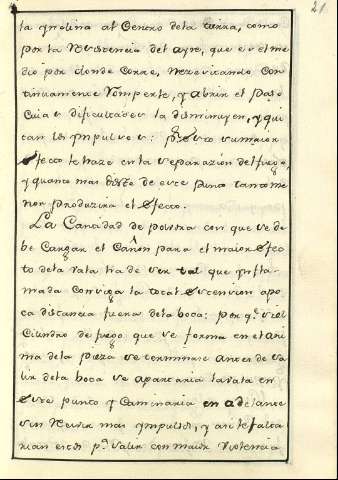 21
la ynclina al Centro dela tierra, como
por la Resistencia del ayre, que es el me
dio por donde corre, Necesitando Con
tinuamente Romperle, y abrir el Paso
Cuias dificultades la disminuyen, y qui
tan los ympulsos: pr. Esto su maior
Efecto le haze en la separazion del fuego,
y quanto mas diste de este punto tanto me
nor produzira el Efecto.
La Cantidad de polvora con que se de
be Cargar el Cañon para el maior Efec
to dela vala ha de ser tal que ynfla
mada Consiga la total Extension apo
ca distancia fuera dela boca: por qe. si el
Cilindro de fuego que se forma en el ani
ma dela Pieza se terminase antes de sa
lir dela boca se apartaria la vala en
Este punto y Caminaria en adelante
sin Recivir mas ympulsos, y asi le falta
rian estos pa. salir con maior Violencia